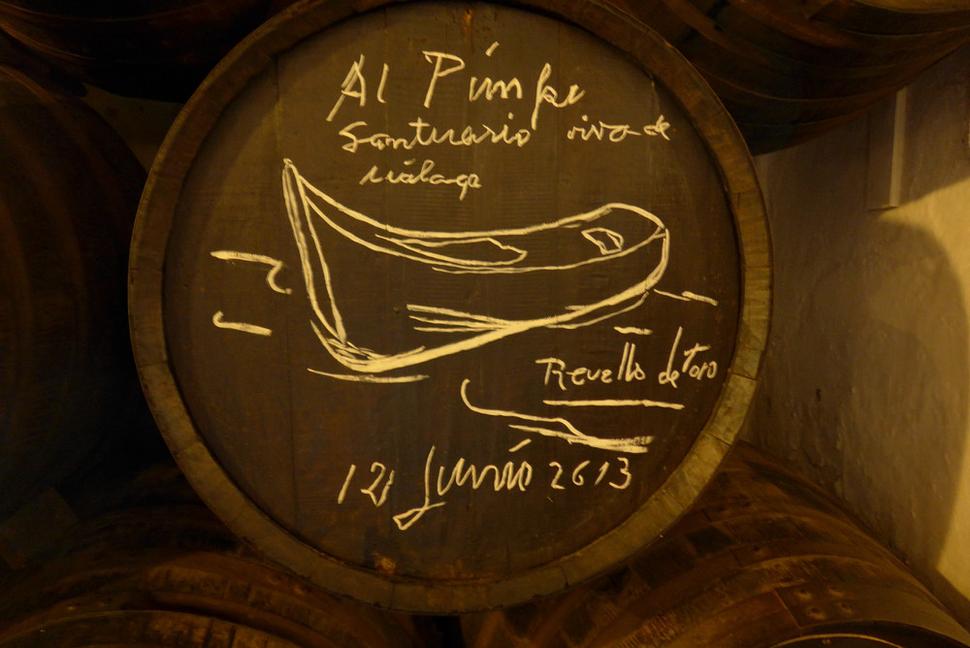 Al Pimpi
Santuario vivo de
Málaga
Revello de Toro
12 Junio 2013